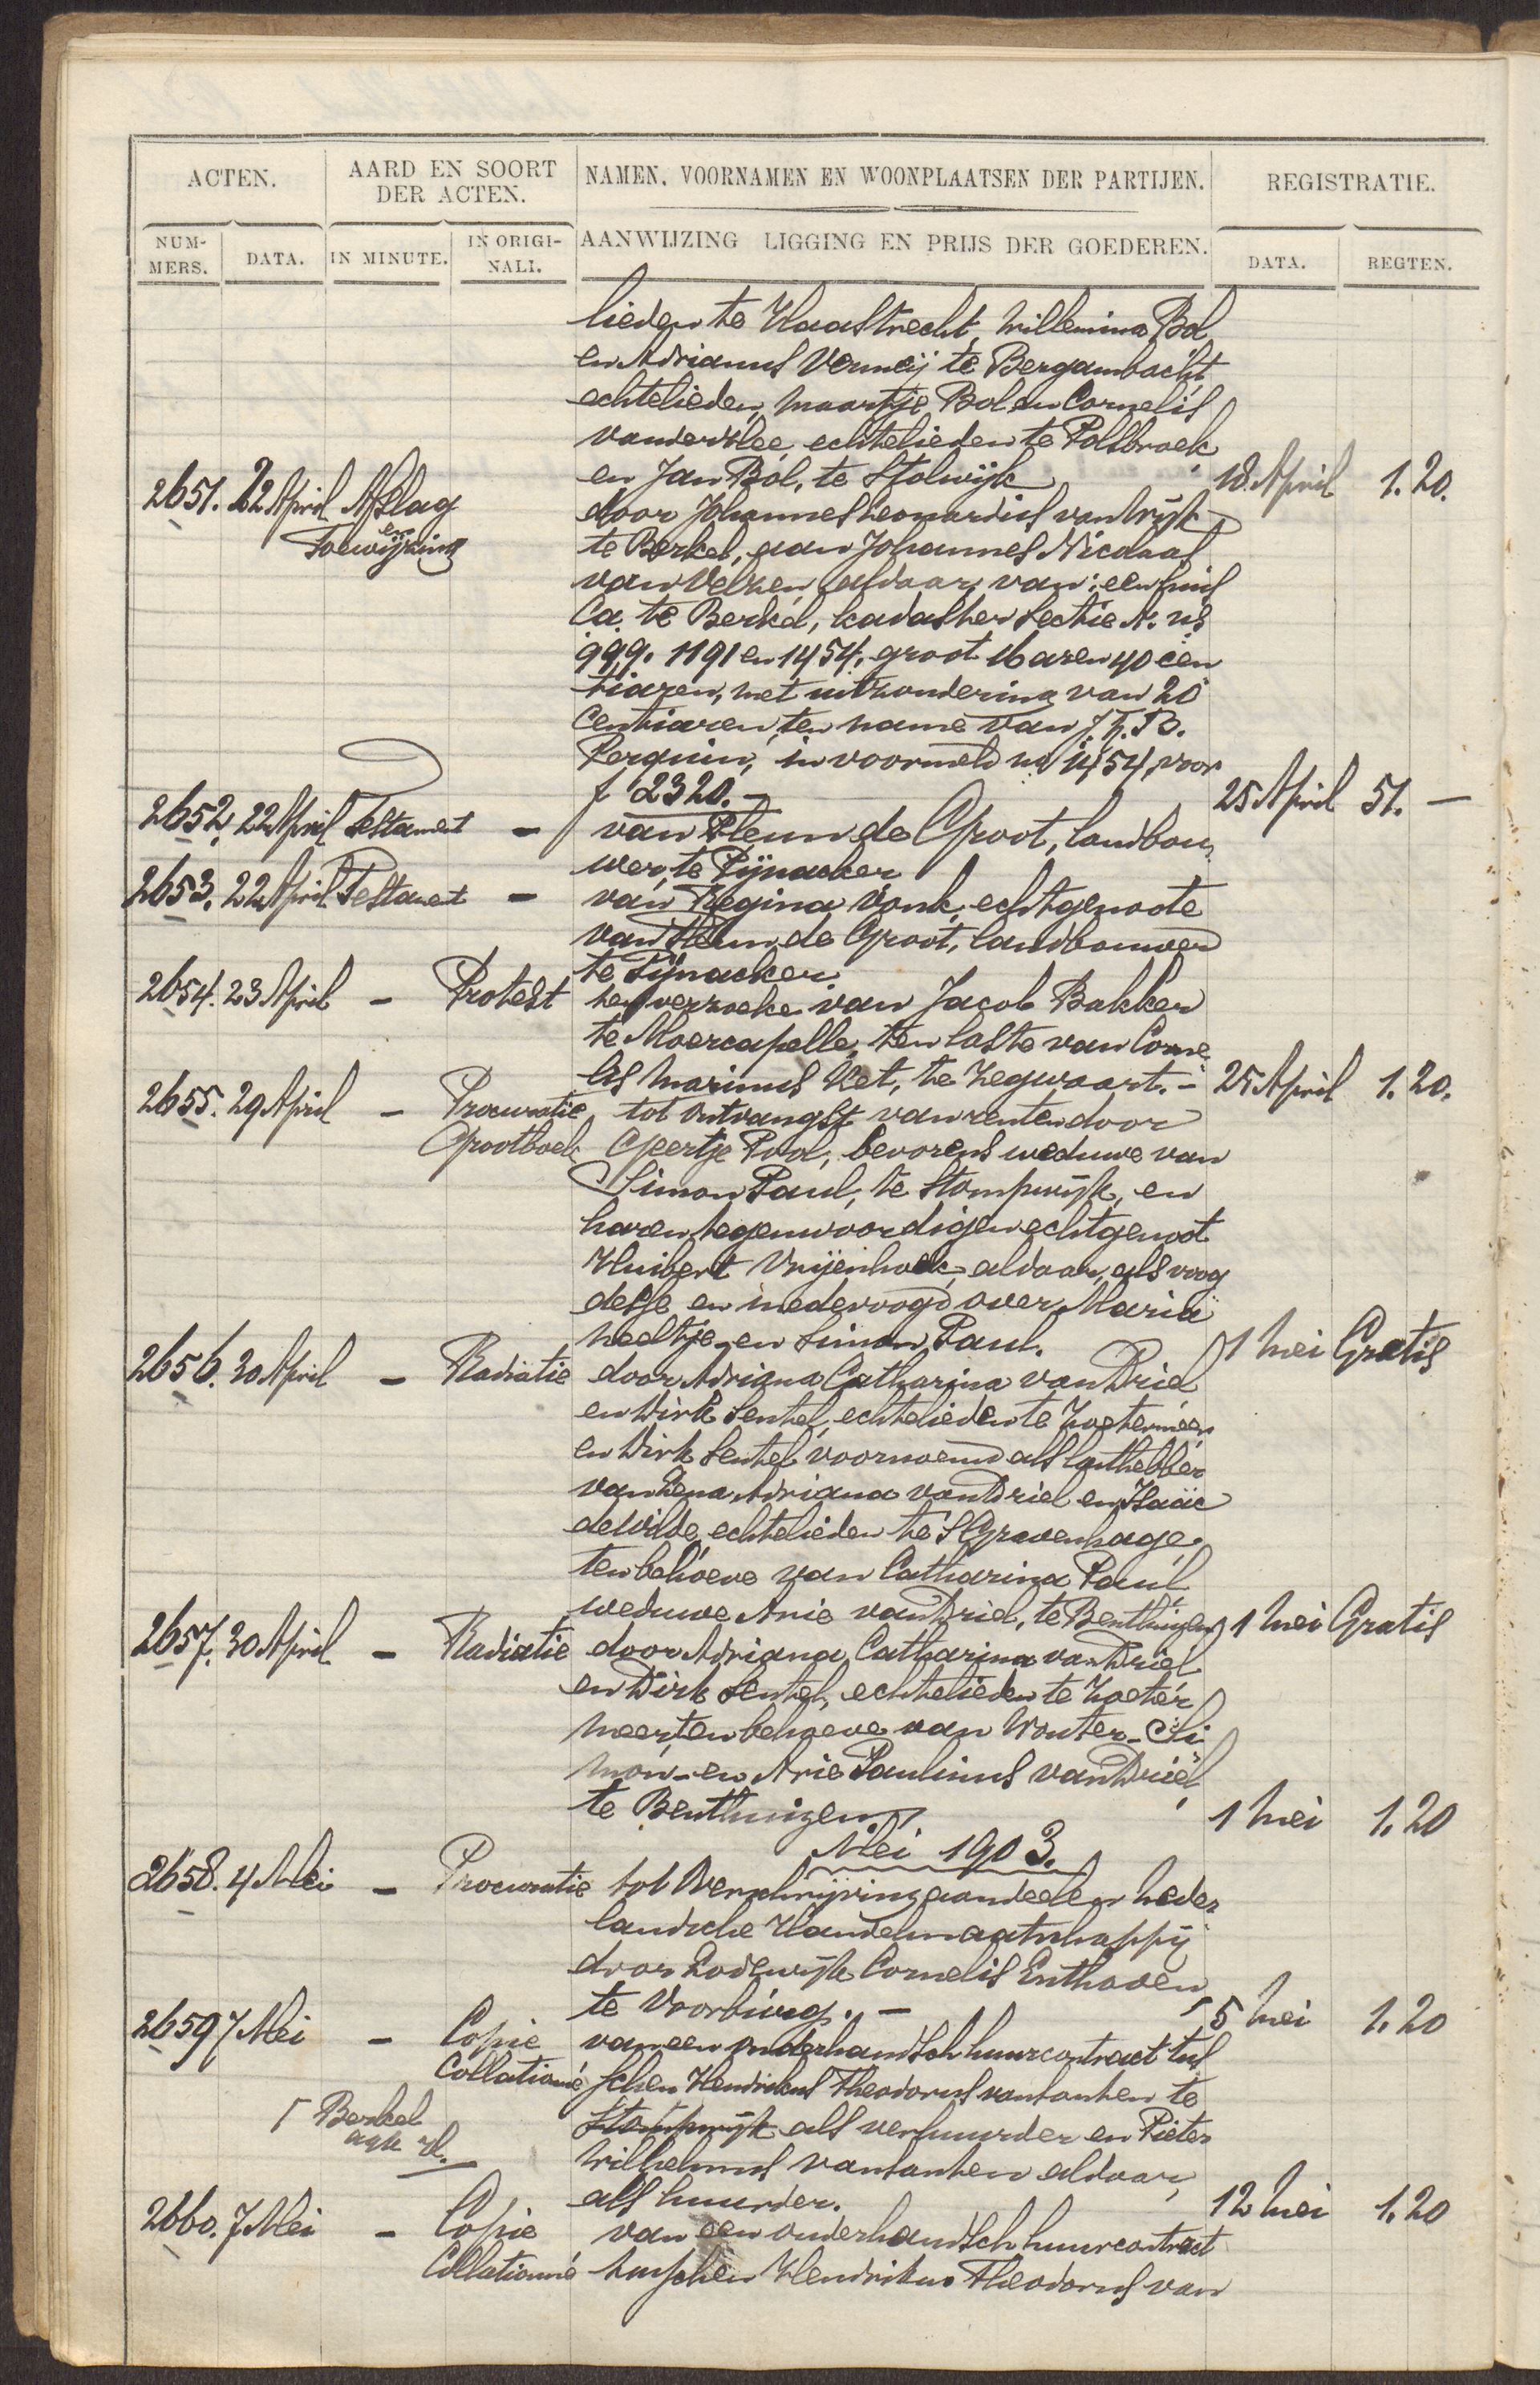 ACTEN.
AARD EN SOORT
DER ACTEN.
NAMEN, VOORNAMEN EN WOONPLAATSEN DER PARTIJEN.
REGISTRATIE.
NUM-
MERS.
DATA.
IN MINUTE.
IN ORIGI-
NALI.
AANWIJZING LIGGING EN PRIJS DER GOEDEREN.
DATA.
REGTEN.
lieden te Haastrecht, Willemina Bol
en Adrianus Vermeij te Bergambacht
echtelieden, Maartje Bol en Cornelis
van der Slee, echtelieden te Polsbroek
en Jan Bol, te Stolwijk 18 April 1.20.
2651. 22 April Afslag door Johannes Leonardus van Wijk
en Toewijzing te Berkel, aan Johannes Nicolaas
van Velzen aldaar, van: een huis
Ca. te Berkel, kadaster sectie A. ns
999. 1191 en 1454, groot 16 aren 40 cen
tiaren, met uitzondering van 20
Centiaren, ten name van J. H. B.
Perquin, in voormeld no 1454, voor
f 2320.- 25 April 51. -
2652. 22 April Testament - van Pleun de Groot, landbou
wer, te Pijnacker
2653. 22 April Testament - van Regina Vonk, echtgenoote
van Pleun de Groot, landbouwer
te Pijnacker
2654. 23 April - Protest ten verzoeke van Jacob Bakker
te Moercapelle, ten laste van Corne
lis Marinus Ket, te Zegwaart. - 25 April 1.20.
2655. 29 April - Procuratie tot ontvangst van renten door
Grootboek Geertje Pool, bevorens weduwe van
Simon Paul, te Stompwijk, en
haren tegenwoordigen echtgenoot
Huibert Vrijenhoek, aldaar, als voog
desse en medevoogd over Maria
Neeltje en Simon Paul. 1 Mei Gratis
2656. 30 April - Radiatie door Adriana Catharina van Driel
en Dirk Sentel, echtelieden te Zoetermeer
en Dirk Sentel voornoemd als lasthebber
van Lena Adriana van Driel en Isaäc
de Wilde, echtelieden te 's Gravenhage,
ten behoeve van Catharina Paul
weduwe Arie van Driel, te Benthuizen 1 Mei Gratis
2657. 30 April - Radiatie door Adriana Catharina van Driel
en Dirk Sentel, echtelieden te Zoeter
meer, ten behoeve van Wouter- Si
mon- en Arie Paulinus van Driel
te Benthuizen 1 Mei 1.20
Mei 1903.
2658. 4 Mei - Procuratie tot Overschrijving aandeelen Neder
landsche Handelmaatschappij
door Lodewijk Cornelis Enthoven
te Voorburg. - 5 Mei 1.20
2659 7 Mei - Copie van een onderhandsch huurcontract tus
Collationé schen Hendrikus Theodorus van Santen te
Berkel Stompwijk als verhuurder en Pieter
Wilhelmus van Santen aldaar,
als huurder. 12 Mei 1.20
2660. 7 Mei - Copie van een onderhandsch huurcontract
Collationné tusschen Hendrikus Theodorus van